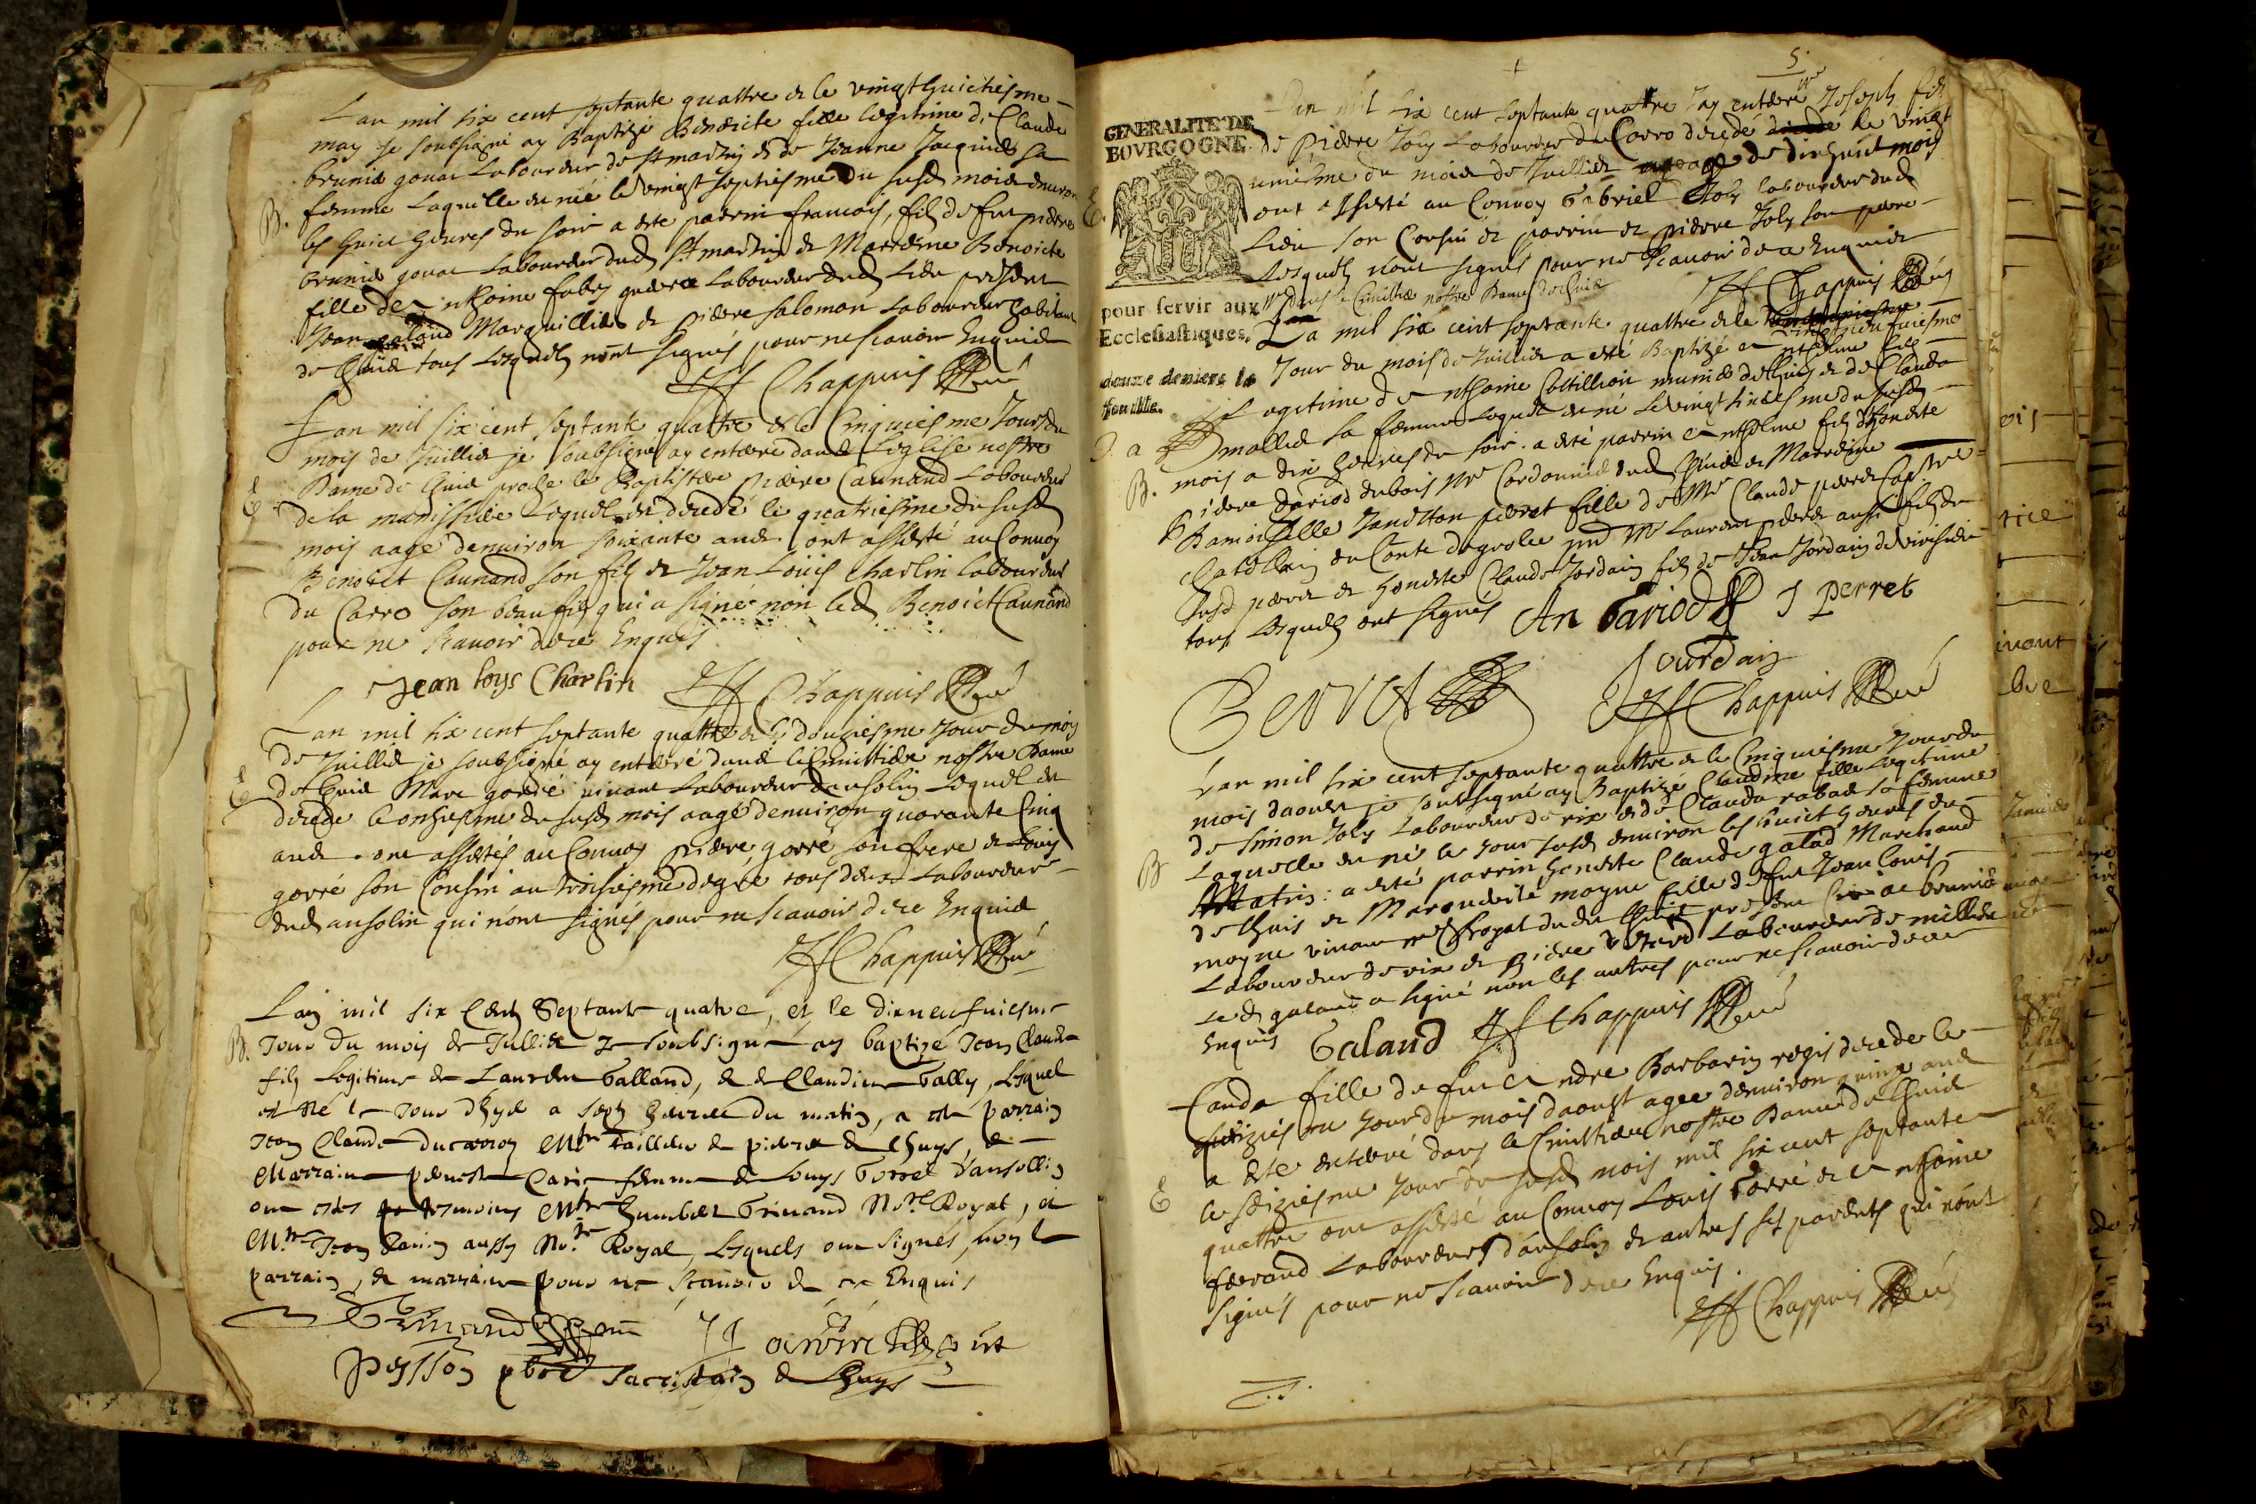 Lan mil six cent septante quattre et le vingt huictiesme
may je soubsigné ay Baptizé Benoicte fille legitime de Claude
brunie gouat Laboureur de st martin et de Jeanne Jacquier sa
B. femme Laquelle est née le vingt septiesme du susd mois environ
les huict heures du soir a este parrin francois, filz de fut pierre
brunie gouat Laboureur dud st martin et Marreine Benoicte
fille de Laboureur dud Lieu present
Jean galand Marguillier et pierre salomon Laboureur habitant
de lhuis tous Lesquelz nont signés pour ne scavoir Enquis
Chappuis Curé
Lan mil six cent septante quattre et le Cinquiesme Jour du
mois de Juillet je soubsigné ay enterré dans Leglise nostre
Dame de lhuis proche le Baptistere pierre Caunand Laboureur
E de la Lequel est decedé le quatriesme du susd
mois aagé denviron soixante ans. ont assisté au Convoy
Benoict Caunand son filz et Jean Louis Charlin laboureur
du Carro son beau filz qui a signé non led Benoict Caunand
pour ne scavoir dece Enquis
Jean loys Charlin Chappuis Curé
Lan mil six cent septante quattre et le douziesme Jour du mois
de Juillet je soubsigné ay enterré dans le Cimittiere nostre Dame
E de lhuis Marc gorré vivant Laboureur dansolin Lequel est
decedé le onziesme du susd mois aagé denviron quarante Cinq
ans. ont assistés au Convoy pierre gorré son frere et Louis
gorré son Cousin au troisiesme degré tous deux Laboureurs
dud ansolin qui n'ont signés pour ne scavoir dece Enquis
Chappuis Curé
Lan mil six Cents Septante quatre, et le dixneufuiesme
B. Jour du mois de Jullier Je soubsigné ay baptizé Jean Claude
filz Legitime de Laurent Galland, et de Claudine Gally, Lequel
est né le Jour dhyer a sept heures du matin, a esté parrain
Jean Claude Mtre Tailleur de pierre de Lhuys et
Marraine femme de Louys Gorret D'ansollin
ont estes tesmoins Mtre humbert Grinand Royal, et
Mtre Jean aussy Royal, Lesquels ont signés, non le
parrain, et marraine pour ne scavoir de ce Enquis
Grinand
sacristain de Lhuys
5
GENERALITE DE
BOVRGOGNE
pour servir aux
Ecclesiastiques.
douze deniers la
feuille.
Lan mil six cent septante quattre Jay enterré Joseph filz
de pierre Joly Laboureur du Carro decedé le vingt
E. uniesme du mois de Juillet de dixhuict mois
ont assisté au Convoy Gabriel Joly laboureur dud
Lieu son Cousin et parrin et pierre Joly son pere
Lesquelz n'ont signés pour ne scavoir de ce Enquis
dans le Cimittiere nostre Dame de lhuis Chappuis Curé
La mil six cent septante quattre et le
Jour du mois de Juillet a esté Baptizé Anthelme filz
Legitime de Anthoine Costillion munier de lhuis et de Clauda
mollier sa femme Lequel est né Le vingt du susd
B. mois a dix heures du soir. a esté parrin Anthelme filz dhoneste
pierre dariod dubois Mr Cordonnier dud lhuis et Marreine
Damoiselle Janetton perret fille de Mr Claude perret Capt
Chatellain du Conte de groslee Mr Laurent perret aussi filz du
susd perret et honeste Claude Jordain filz de Jean Jordain
tous Lesquelz ont signés An Dariod J perret
Perret Jourdain
Chappuis Curé
Lan mil six cent septante quattre et le Cinquiesme Jour du
mois daoust je soubsigné ay Baptizé Claudine fille Legitime
de Simon Joly Laboureur de rix et de Clauda rabat sa femme
B Laquelle est née le Jour susd environ les huict heures du
Matin: a esté parrin honeste Claude galad Marchand
de lhuis et Marguerite moyne fille de fut Jean Louis
moyne vivant royal dudit lhuis present brunie
Laboureur de rix et pierre Laboureur de
Led galand a signé non les autres pour ne scavoir de ce
Enquis Galand Chappuis Curé
Clauda fille de fut Andre Barbarin regis decedee le
Jour du mois daoust agee denviron quinze ans
a este enterré dans le Cimittiere nostre Dame de lhuis
E le seiziesme Jour du susd mois mil six cent septante
quattre ont assisté au Convoy Louis Gorré et Anthoine
ferrand Laboureurs d'ansolin et autres ses parents qui n'ont
signés pour ne scavoir dece Enquis.
Chappuis Curé